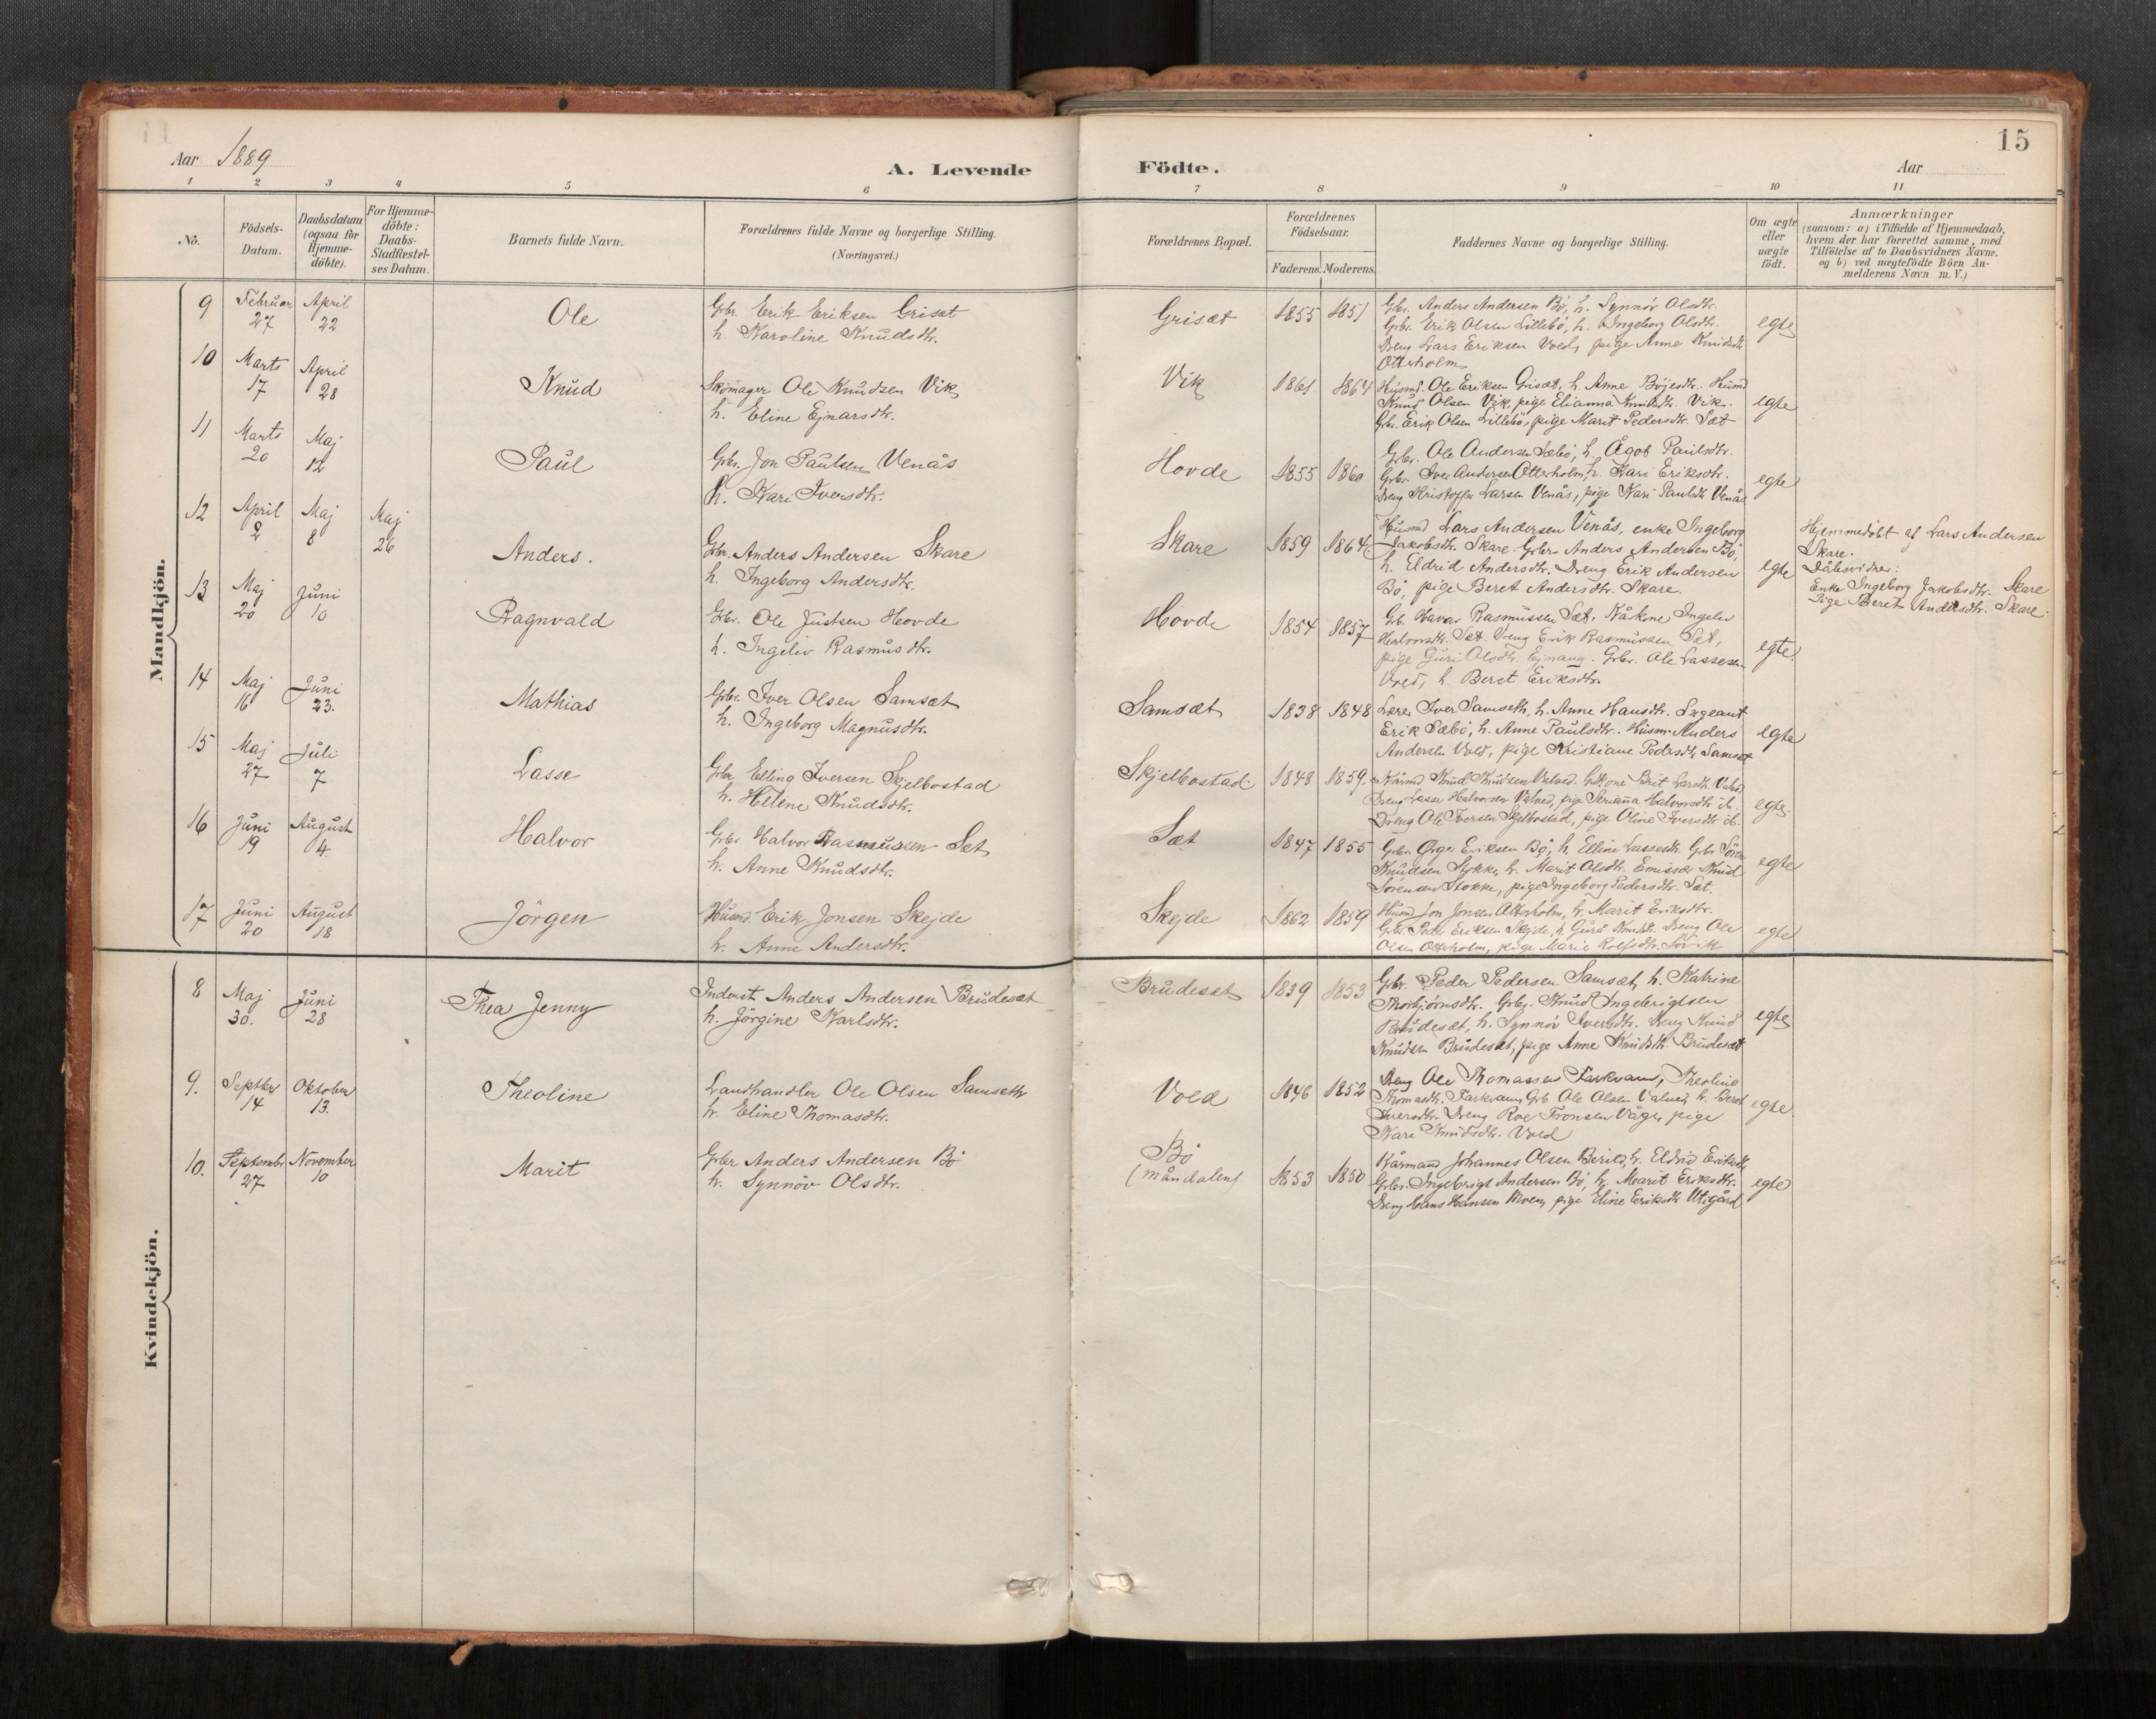 15
Aar 1889
A. Levende
Födte.
Aar
1 2 3 4 5 6 7 8 9 10 11
No.
Födsels-
Datum.
Daabsdatum
(ogsaa for
Hjemme-
döbte).
For Hjemme-
döbte:
Daabs-
Stadfæstel-
ses Datum.
Barnets fulde Navn.
Forældrenes fulde Navne og borgerlige Stilling.
(Næringsvei.)
Forældrenes Bopæl.
Forældrenes
Födselsaar.
Faderens. Moderens.
Faddernes Navne og borgerlige Stilling.
Om ægte
eller
uægte
födt.
Anmærkninger
(saasom: a) i Tilfælde af Hjemmedaab,
hvem der har forrettet samme, med
Tilföielse af to Daabsvidners Navne.
og b) ved uægtefödte Börn An-
melderens Navn m. V.)
Mandkjön.
9 Februar 27 April 22 Ole
Gbr. Erik Eriksen Grisæt
h. Karoline Knudsdtr.
Grisæt 1855 1851
Gbr. Anders Andersen Bö, h. Synnöv Olsdtr.
Gbr. Erik Olsen Lillebö, h. Ingeborg Olsdtr.
Dreng Lars Eriksen Vold, pige Anne Knudsdtr.
Otterholm
egte
10 Marts 17 April 28 Knud
Skömager Ole Knudsen Vik
h. Eline Ejnarsdtr.
Vik 1861 1864
Husmd. Ole Eriksen Grisæt, h. Anne Böjesdtr. Husmd
Knud Olsen Vik, pige Elianna Knudsdtr. Vik.
Gbr. Erik Olsen Lillebö, pige Marit Pedersdtr. Sæt
egte
11 Marts 20 Maj 12 Paul
Gbr. Jon Paulsen Venås
h. Kari Iversdtr.
Hovde 1855 1860
Gbr. Ole Andersen Sæbö, h. Ågot Paulsdtr.
Gbr. Iver Andersen Otterholm, h. Kari Eriksdtr.
Dreng Kristoffer Larsen Venås, pige Kari Paulsdtr Venås
egte
12 April 2 Maj 8 Maj 26 Anders.
Gbr. Anders Andersen Skare
h. Ingeborg Andersdtr.
Skare 1859 1864
Husmd Lars Andersen Venås, enke Ingeborg
Jakobsdtr. Skare. Gbr. Anders Andersen Bö,
h. Eldrid Andersdtr. Dreng Erik Andersen
Bö, pige Beret Andersdtr. Skare.
egte
Hjemmedöbt af Lars Andersen
Skare.
Dåbsvidner:
Enke Ingeborg Jakobsdtr. Skare
Pige Beret Andersdtr. Skare.
13 Maj 20 Juni 10 Ragnvald
Gbr. Ole Justsen Hovde
h. Ingeliv Rasmusdtr.
Hovde 1854 1857
Gb. Havar Rasmussen Sæt, Kårkone Ingeliv
Halvorsdtr. Sæt. Dreng Erik Rasmussen Sæt,
pige Guri Olsdtr. Gbr. Ole Lassesen
Vold, h. Beret Eriksdtr.
egte
14 Maj 16 Juni 23. Mathias
Gbr. Iver Olsen Samsæt
h. Ingeborg Magnusdtr.
Samsæt 1838 1848
Lærer Iver Samseth, h. Anne Hansdtr. Sergeant
Erik Sæbö, h. Anne Paulsdtr. Husm. Anders
Andersen Vold, pige Kristiane Pedersdtr. Samsæt
egte
15 Maj 27 Juli 7 Lasse
Gbr Elling Iversen Skjelbostad
h. Heline Knudsdtr.
Skjelbostad 1848 1859.
Kårmd Knud Knudsen
Dreng Lasse Halvorsen pige Halvorsdtr
Dreng Ole Iversen Skjelbostad, pige Oline Iversdtr
egte
16 Juni 19 August 4. Halvor
Gbr. Halvor Rasmussen Sæt
h. Anne Knudsdtr.
Sæt 1847 1855
Gbr Eriksen Bö, h. Elline Lassesdtr. Gbr Sören
Knudsen h. Marit Olsdtr. Emissær Knud
Sörensen Stokke, pige Ingeborg Pedersdtr. Sæt.
egte
17 Juni 20 August 18 Jörgen
Husmd. Erik Jonsen Skejde
h. Anne Andersdtr.
Skejde 1862 1859
Husmd Jon Jonsen Otterholm, h. Marit Eriksdtr.
Gbr. Peder Eriksen Skejde, h. Guro Knudsdtr. Dreng Ole
Olsen Otterholm, pige Marie Rolfsdtr. Sövik
egte
Kvindekjön.
8 Maj 30. Juni 28 Thea Jenny
Inderst Anders Andersen Brudesæt
h. Jörgine Karlsdtr.
Brudesæt 1839 1853
Gbr. Peder Pedersen Samsæt, h. Katrine
Thorbjörnsdtr. Gbr. Knud Ingebrigtsen
Brudesæt, h. Synnöv Iversdtr. Dreng Knud
Knudsen Brudesæt, pige Anne Knudsdtr. Brudesæt
egte
9. Septber 14 Oktober 13. Theoline
Landhandler Ole Olsen Samseth
h. Eline Thomasdtr.
Vold 1846 1852
Dreng Ole Thomassen Farkvam, Theoline
Thomasdtr. Farkvam, Gb Ole Olsen h. Beret
Iversdtr. Dreng Roe Tronsen Våge, pige
Kari Knudsdtr. Vold
egte.
10. September 27 November 10 Marit
Gbr Anders Andersen Bö
h. Synnöv Olsdtr.
Bö
(måndalen) 1853 1850
Kårmand Johannes Olsen h. Eldrid Eriksdtr,
Gbr. Ingebrigt Andersen Bö, h. Marit Eriksdtr.
Dreng Hans Hansen Moen, pige Eline Eriksdtr Utigård
egte